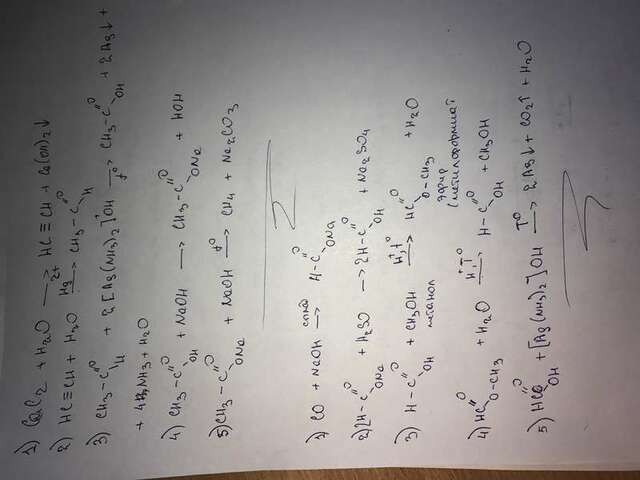 1) CaC2 + H2O ⟶ HC≡CH + Ca(OH)2↓
2) HC≡CH + H2O —Hg2+→ CH3-C=O H
3) CH3-C=O H + 2[Ag(NH3)2]OH —t°→ CH3-C=O OH + 2Ag↓ +
+ 4NH3 + H2O
4) CH3-C=O OH + NaOH ⟶ CH3-C=O ONa + HOH
5) CH3-C=O ONa + NaOH —t°→ CH4 + Na2CO3
1) CO + NaOH ⟶ H-C=O ONa
2) 2H-C=O ONa + H2SO ⟶ 2H-C=O OH + Na2SO4
3) H-C=O OH + CH3OH —H+, t°→ HC=O O-CH3 + H2O
метанол эфир
(метилформиат
4) HC=O O-CH3 + H2O —H+, t°→ H-C=O OH + CH3OH
5) HC=O OH + [Ag(NH3)2]OH —T°→ 2Ag↓ + CO2↑ + H2O